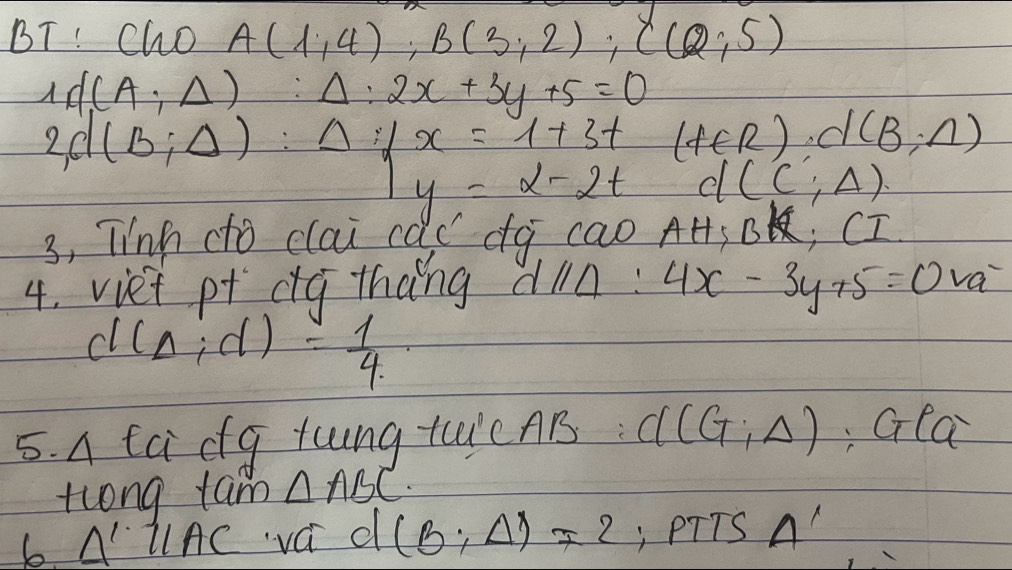 BT: Cho A(1;4); B(3;2); C(2;5)
1, d(A; Δ) : Δ: 2x + 3y + 5 = 0
2, d(B; Δ) : Δ: { x = 1 + 3t (t∈R). d(B; Δ)
y = 2 - 2t d(C; Δ).
3, Tính độ dài các đg cao AH; BK; CI.
4. Viết pt đg thẳng d // Δ : 4x - 3y + 5 = 0 và
d(Δ; d) = 1/4.
5. Δ là đg trung trực AB : d(G; Δ); G là
trọng tâm ΔABC.
6. Δ' // AC và d(B; Δ') = 2; PTTS Δ'